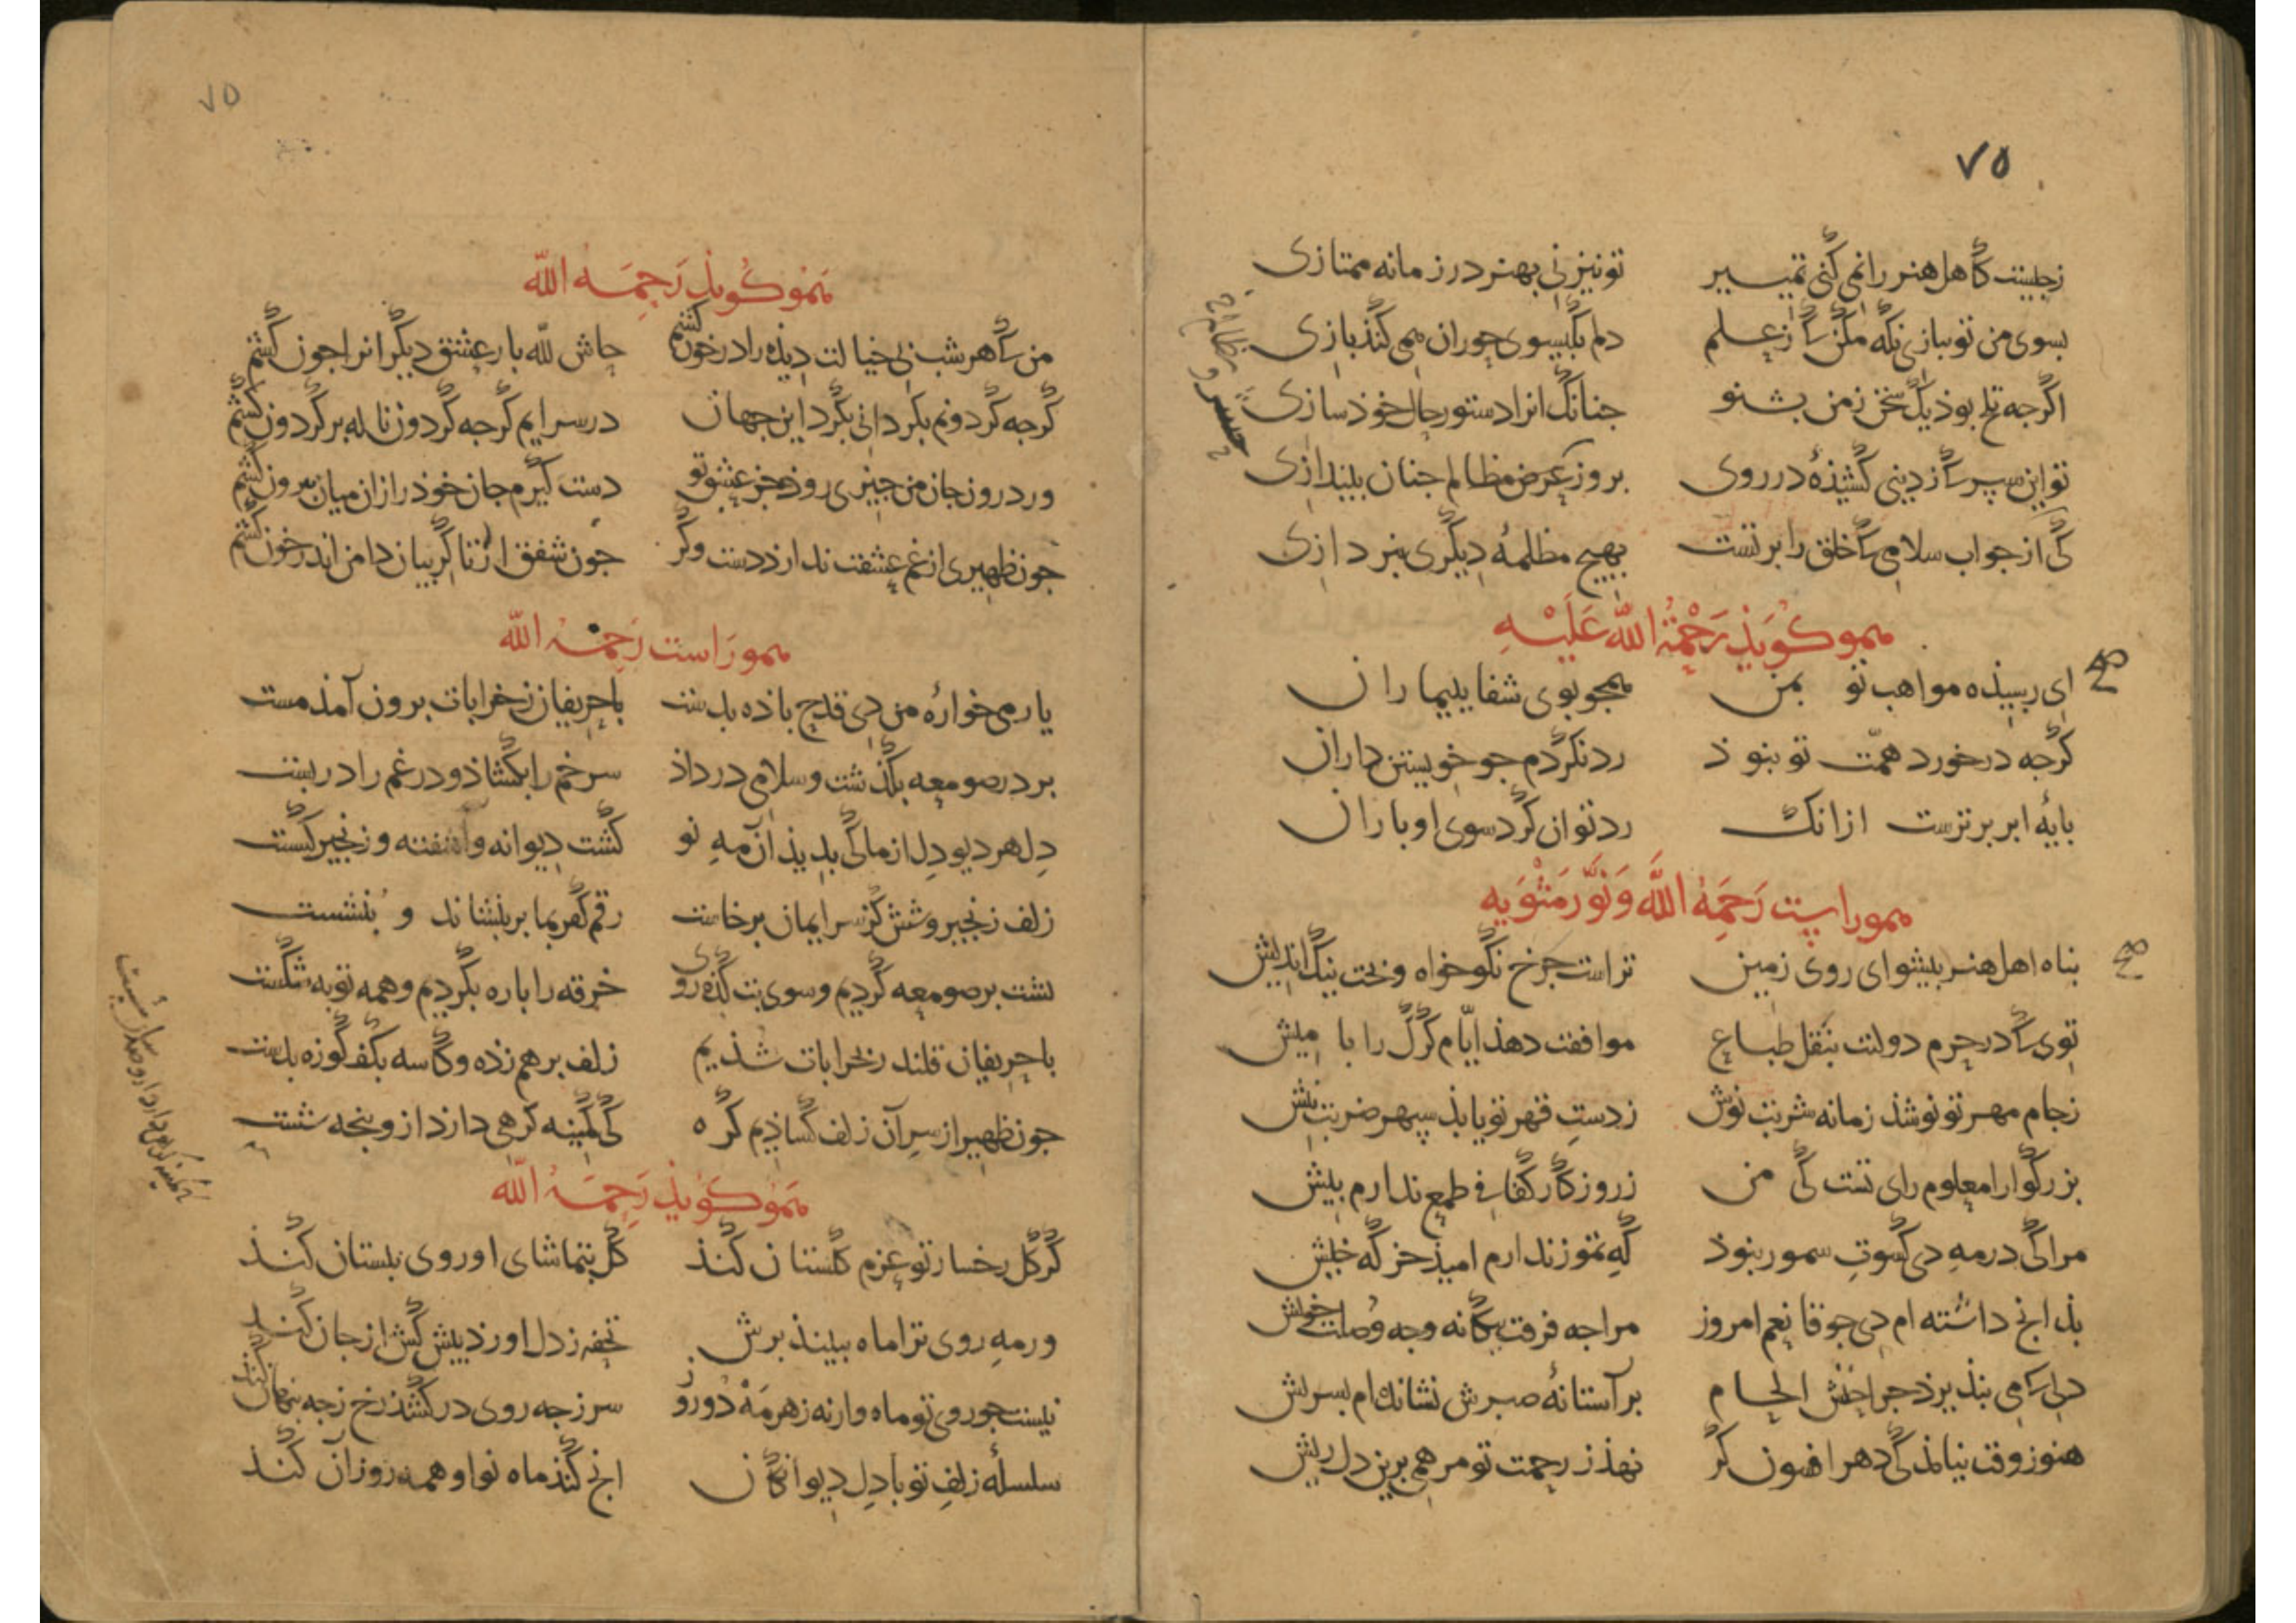 ٧٥
ز چیست کاهل هنر را نمی کنی تمییز تو نیز نی بهنر در زمانه ممتازی
بسوی من تو ببازی نکه مکن که ز علم دلم بکیسوی حوران همی کند بازی
اکرجه تلخ بود یک سخن ز من بشنو جنانک انرا دستور حال خود سازی
تو این سپر که ز دینی کشیذهٔ در روی بروز عرض مظالم جنان بیندازی
کی از جواب سلامی که خلق را بر تست بهیچ مظلمهٔ دیکری نبردازی
همو کویذ رحمة الله علیه
ای رسیذه مواهب تو بمن همجو بوی شفا ببیماران
کرجه در خورد همّت تو نبوذ رد نکردم جو خویشتن داران
بایهٔ ابر برترست ازانک رد توان کرد سوی او باران
همو راست رحمه الله ونوّر مثویه
بناه اهل هنر بیشوای روی زمین تراست جرخ نکوخواه و بخت نیک اندیش
توی که در حرم دولت بنقل طباع موافقت دهذ ایّام کرک را با میش
ز جام مهر تو نوشذ زمانه شربت نوش ز دستِ قهر تو یابذ سپهر ضربت نیش
بزرکوارا معلوم رای تست کی من ز روزکار کفافی طمع ندارم بیش
مرا کی در مهِ دی کسوتِ سمور نبوذ کهِ تموز ندارم امیذ خرکه خیش
بذانج داشته ام دی جو قانعم امروز مرا جه فرقت بیکانه وجه وصلت خویش
دلی که می نبذیرذ جراحتش الحام بر آستانهٔ صبرش نشانده ام بسریش
هنوز وقت نیامذ کی دهر افسون کر نهذ ز رحمت تو مرهمی برین دل ریش
٧٥
همو کویذ رحمه الله
من که هر شب بی خیالت دیذه را در خون کشم حاش لله بار عشق دیکرانرا جون کشم
کرجه کردونم بکرد انی بکرد این جهان در سرایم کرجه کردون ناله بر کردون کشم
ور درون جان من جیزی روذ جز عشق تو دست کیرم جان خوذ را زان میان بیرون کشم
جون ظهیری از غم عشقت ندارذ دست و کر جون شفق از تا کریبان دامن اندر خون کشم
همو راست رحمه الله
یار می خوارهٔ من دی قدح باذه بدست با حریفان ز خرابات برون آمذ مست
بر در صومعه بکذشت و سلامی در داذ سر خم را بکشاذ و در غم را در بست
دل هر دیو دل از ما کی بدیذ آن مهِ نو کشت دیوانه و آشفته و زنجیر کسست
زلف زنجیر وشش کز سر ایمان برخاست رقم کفر بما بر بنشاند و بنشست
بشت بر صومعه کردیم و سوی بتکذه روی خرقه را باره بکردیم و همه توبه شکست
با حریفان قلندر بخرابات شذیم زلف بر هم زده و کاسه بکف کوزه بدست
جون ظهیر از سر آن زلف کشاذیم کره کی کمینه کرهی دارذ ازو بنجه شست
همو کویذ رحمه الله
کر کل رخسار تو عزم کلستان کنذ کل بتماشای او روی ببستان کنذ
ور مهِ روی ترا ماه ببینذ برش تحفه ز دل اورذ بیش کش از جان کنذ
نیست جو روی تو ماه وارنه ز هر مه دو روز سر ز جه روی در کشذ رخ ز جه بنهان کنذ
سلسلهٔ زلفِ تو با دل دیوانکان انج کنذ ماه نو او همه روز آن کنذ